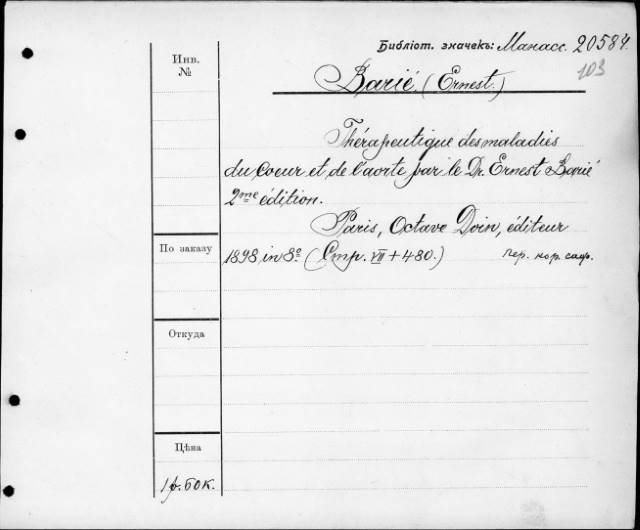 Библіот. значекъ: Манасс. 20584.
103
Инв.
№
Barié (Ernest.)
Thérapeutique des maladies
du Coeur et de l'aorte par le Dr. Ernest Barié
2me édition.
Paris, Octave Doin, éditeur
По заказу
1898, in 8º. (Стр. VII + 480.)
пер. кор. сафр.
Откуда
Цѣна
1 р. 60 к.